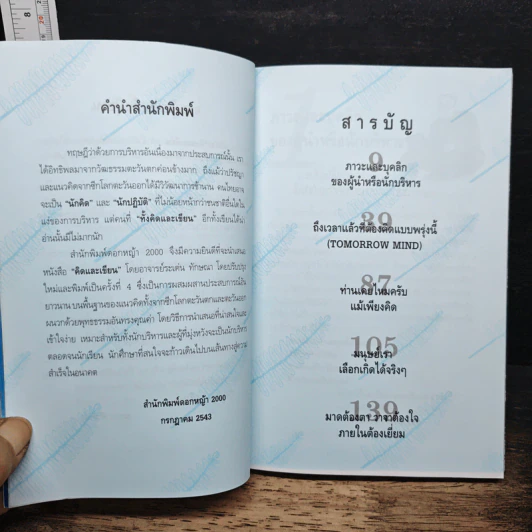 คำนำสำนักพิมพ์
ทฤษฎีว่าด้วยการบริหารอันเนื่องมาจากประสบการณ์นั้น เรา
ได้อิทธิพลมาจากวัฒนธรรมตะวันตกค่อนข้างมาก ถึงแม้ว่าปรัชญา
และแนวคิดจากซีกโลกตะวันออกได้มีวิวัฒนาการช้านาน คนไทยอาจ
จะเป็น "นักคิด" และ "นักปฏิบัติ" ที่ไม่น้อยหน้ากว่าชนชาติอื่นใดใน
แง่ของการบริหาร แต่คนที่ "ทั้งคิดและเขียน" อีกทั้งเขียนได้น่า
อ่านนั้นมีไม่มากนัก
สำนักพิมพ์ดอกหญ้า 2000 จึงมีความยินดีที่จะนำเสนอ
หนังสือ "คิดและเขียน" โดยอาจารย์ระเด่น ทักษณา โดยปรับปรุง
ใหม่และพิมพ์เป็นครั้งที่ 4 ซึ่งเป็นการผสมผสานประสบการณ์อัน
ยาวนาน บนพื้นฐานของแนวคิดทั้งจากซีกโลกตะวันตกและตะวันออก
ผนวกด้วยพุทธธรรมอันทรงคุณค่า โดยวิธีการนำเสนอที่น่าสนใจและ
เข้าใจง่าย เหมาะสำหรับทั้งนักบริหารและผู้ที่มุ่งหวังจะเป็นนักบริหาร
ตลอดจนนักเรียน นักศึกษาที่สนใจจะก้าวเดินไปบนเส้นทางสู่ความ
สำเร็จในอนาคต
สำนักพิมพ์ดอกหญ้า 2000
กรกฎาคม 2543
สารบัญ
9
ภาวะและบุคลิก
ของผู้นำหรือนักบริหาร
39
ถึงเวลาแล้วที่ต้องคิดแบบพรุ่งนี้
(TOMORROW MIND)
87
ท่านเคยไหมครับ
แม้เพียงคิด
105
มนุษย์เรา
เลือกเกิดได้จริงๆ
139
มาดต้องตา วาจาต้องใจ
ภายในต้องเยี่ยม
8